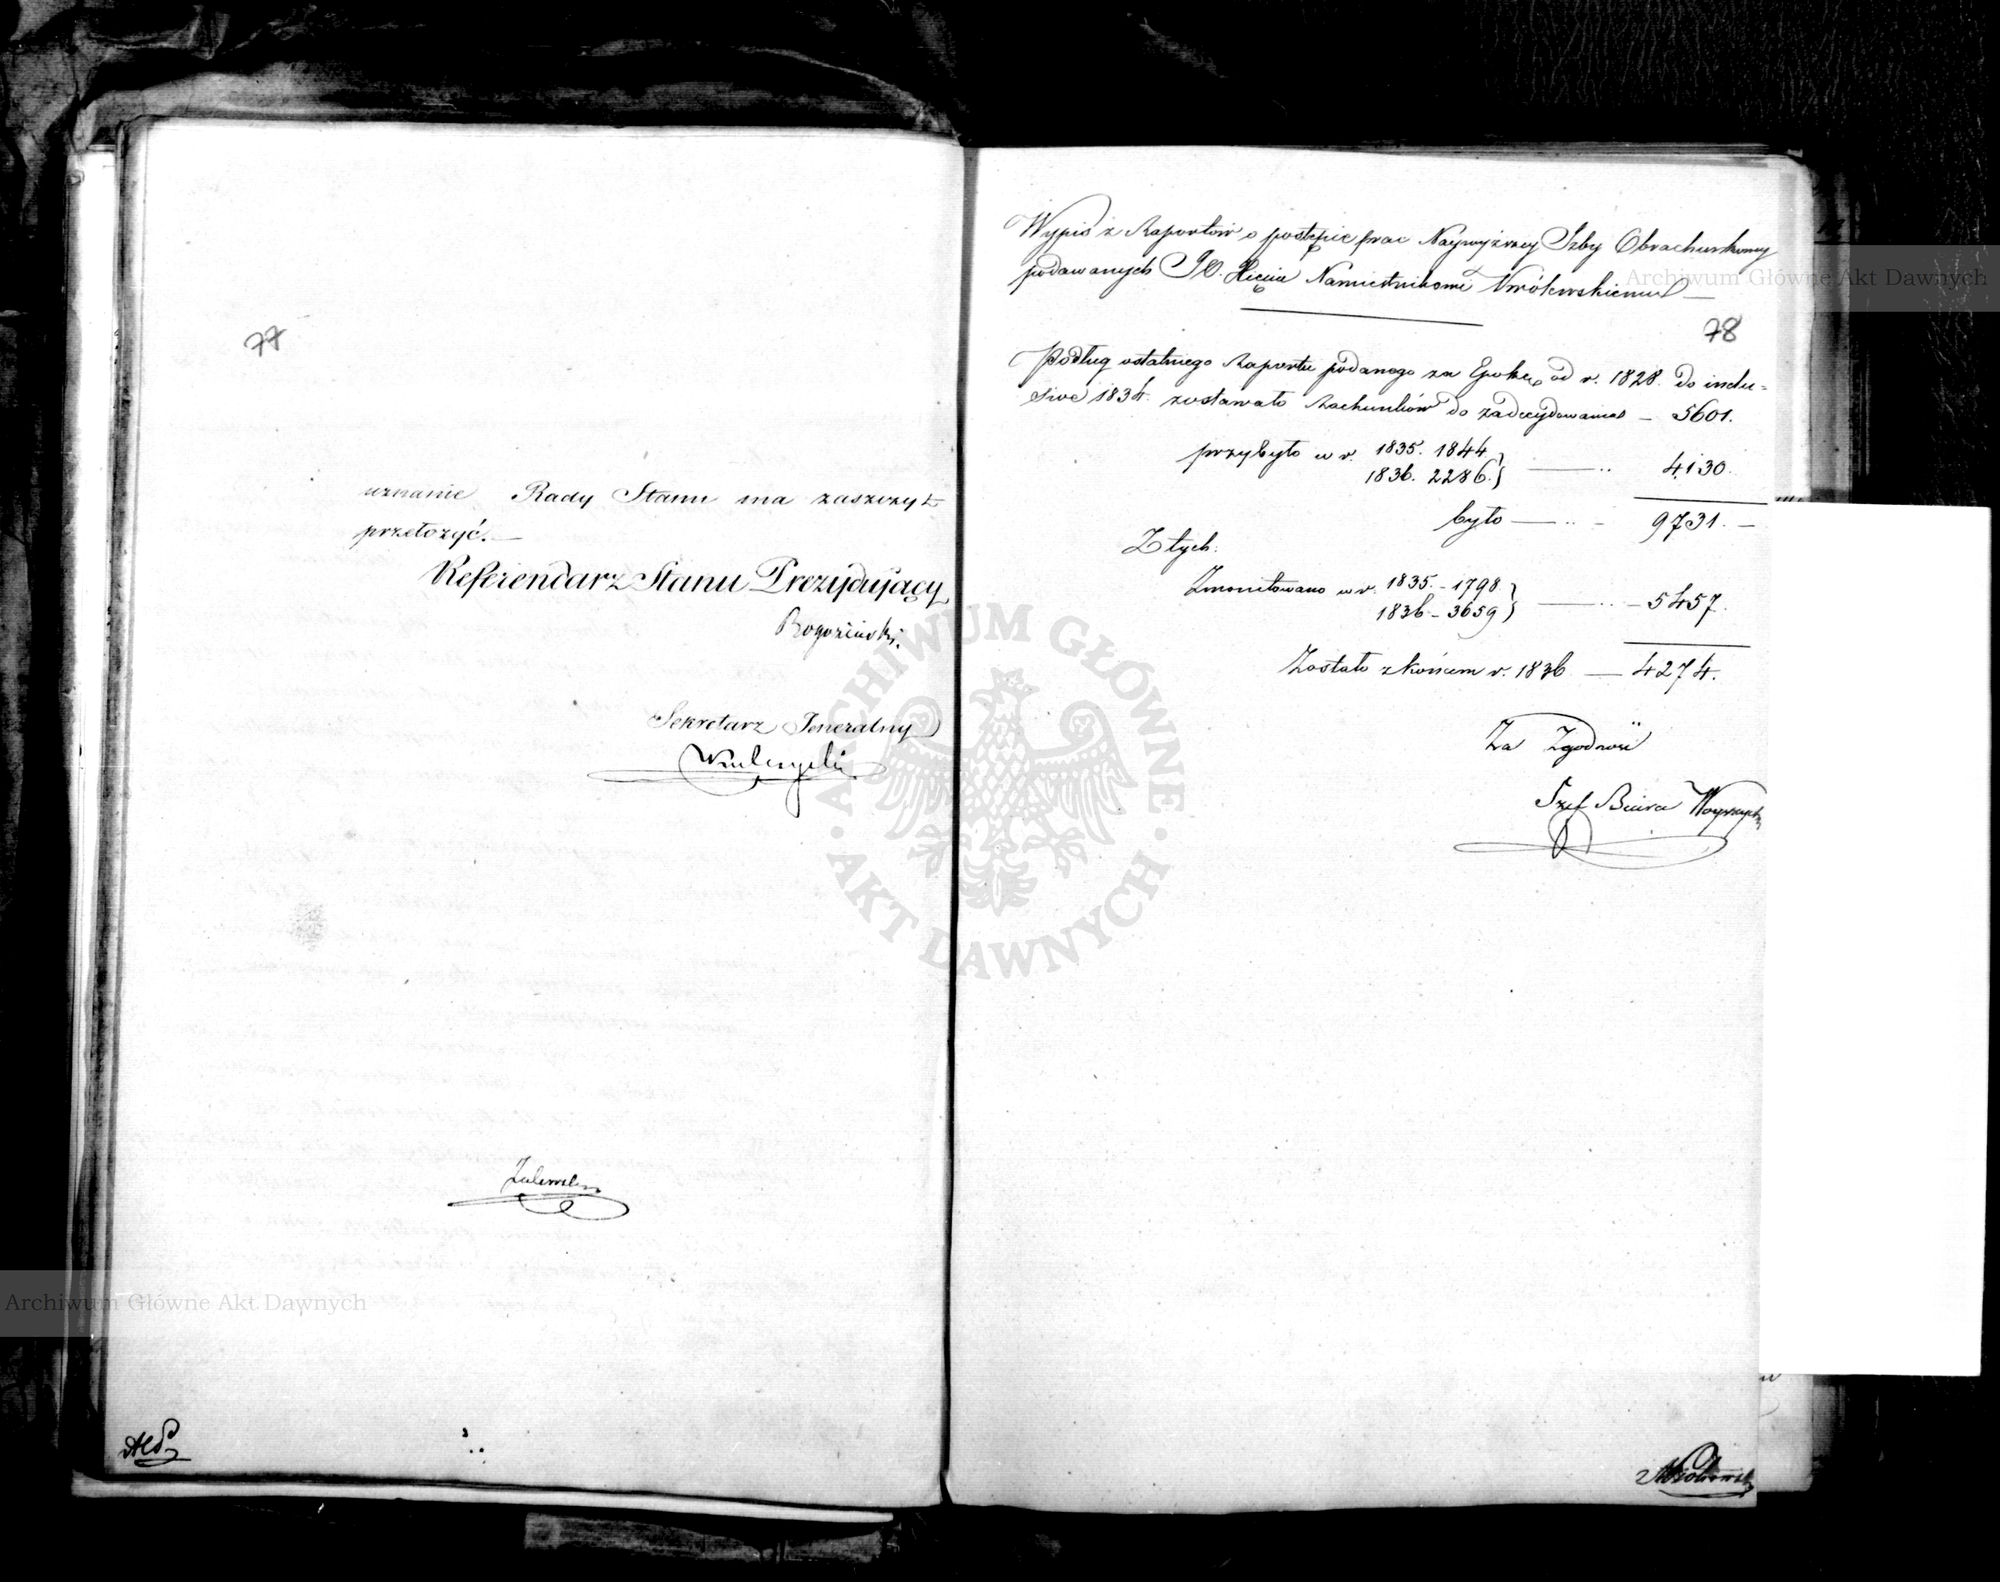 77
uznanie Rady Stanu ma zaszczyt
przełożyć.—
Referendarz Stanu Prezydujący
Rogoziński.
Sekretarz Jeneralny
Zalewski
Wypis z Raportów o postępie prac Naywyższey Izby Obrachunkowey
podawanych J.O. Xięciu Namiestnikowi Królewskiemu —
78
Podług ostatniego Raportu podanego za Epokę od r. 1828. do inclu=
sive 1834. zostawało Rachunków do zadecydowania — 5601.
przybyło w r. 1835. 1844
1836. 2286. } —— .. 4130.
było — .. — 9731. —
Z tych:
Zmonitowano w r. 1835. — 1798.
1836 — 3659 } —— .. — 5457.
Zostało z końcem r. 1836 — 4274.
Za Zgodność
Szef Biura
ARCHIWUM GŁÓWNE · AKT DAWNYCH ·
Archiwum Główne Akt Dawnych
Archiwum Główne Akt Dawnych